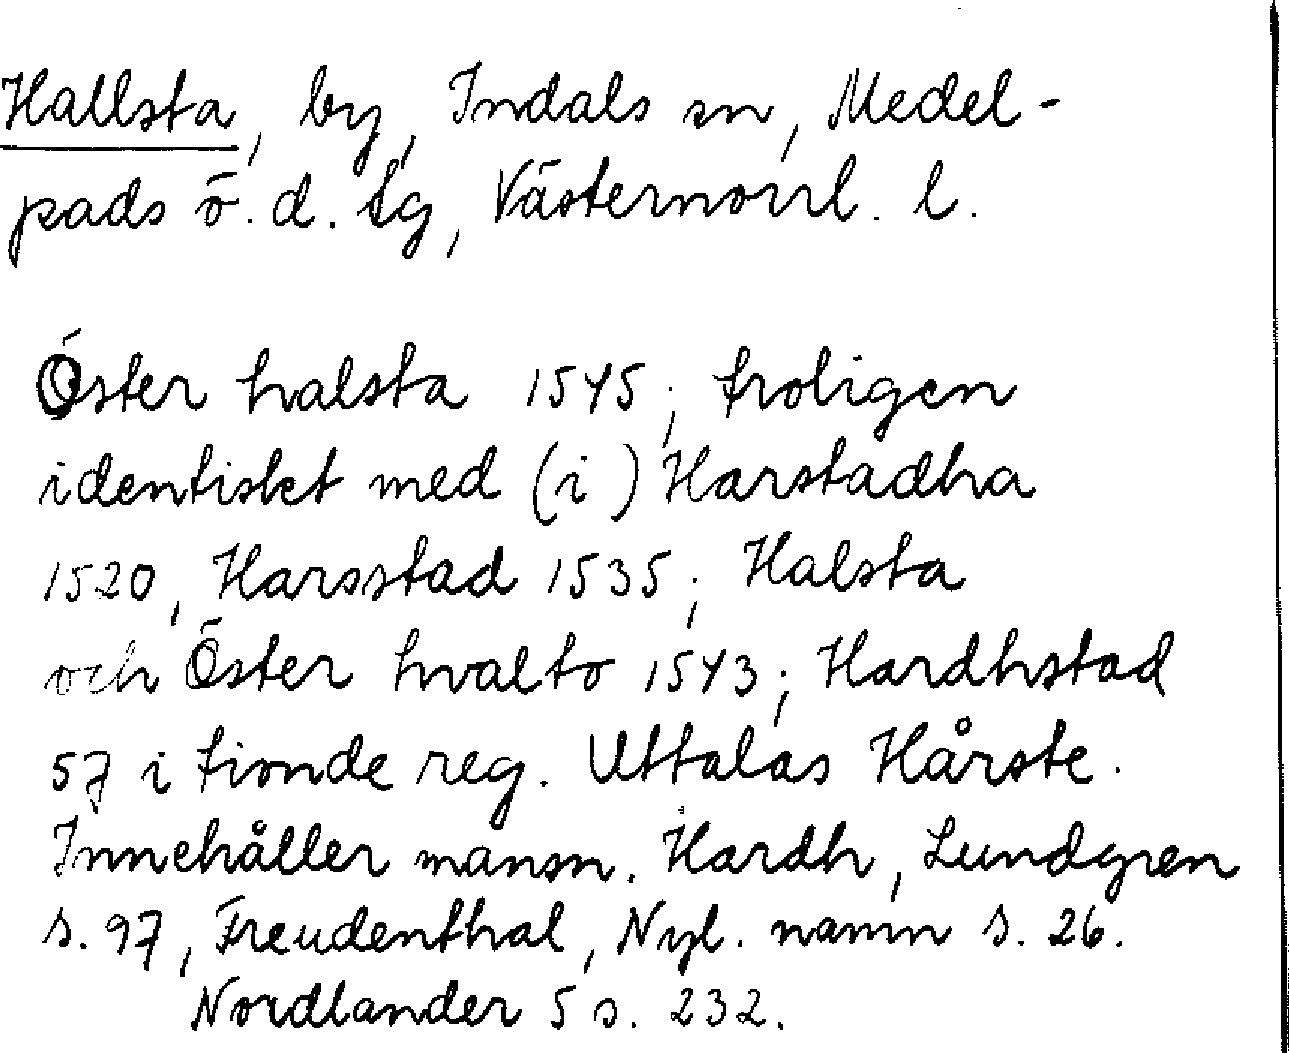 Hallsta, by, Indals sn, Medel-
pads ö. d. tg, Västernorrl. l.
Öster halsta 1545; troligen
identiskt med (i) Harstadha
1520, Harsstad 1535; Halsta
och Öster hvalto 1543; Hardhstad
57 i tionde reg. Uttalas Hårste.
Innehåller mansn. Hardh, Lundgren
s. 97, Freudenthal, Nyl. namn s. 26.
Nordlander 5 s. 232.